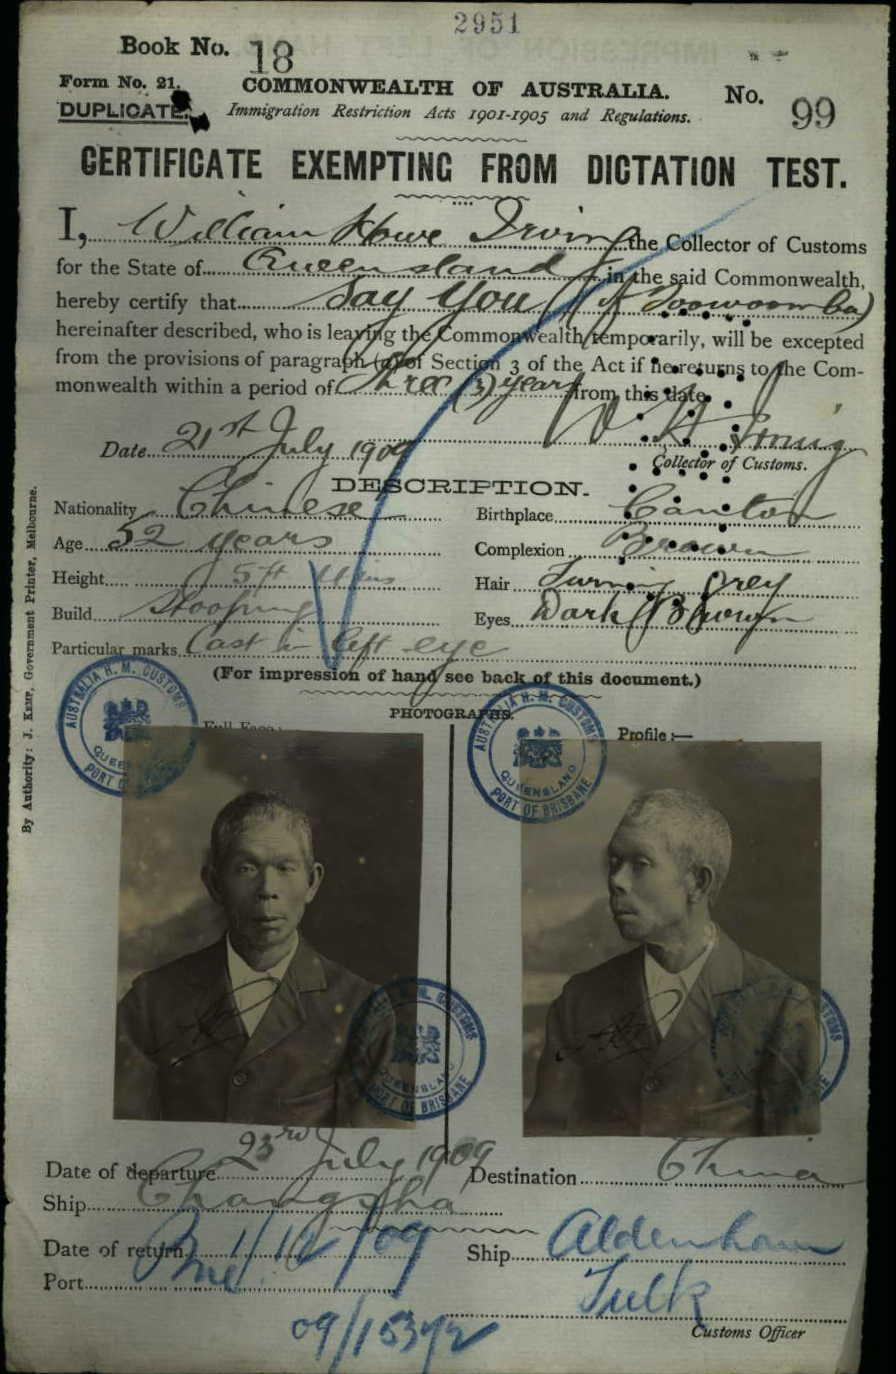 2951
Book No. 18
Form No. 21. COMMONWEALTH OF AUSTRALIA. No. 99
DUPLICATE. Immigration Restriction Acts 1901-1905 and Regulations.
CERTIFICATE EXEMPTING FROM DICTATION TEST.
I, William Howe Irving the Collector of Customs
for the State of Queensland in the said Commonwealth,
hereby certify that Say You (of Toowoomba)
hereinafter described, who is leaving the Commonwealth temporarily, will be excepted
from the provisions of paragraph (a) of Section 3 of the Act if he returns to the Com-
monwealth within a period of Three (3) years from this date.
W H Irving
Date 21st July 1909
Collector of Customs.
DESCRIPTION.
Nationality Chinese Birthplace Canton
Age 52 years Complexion Brown
Height 5ft Hair Turning Grey
Build Stooping Eyes Dark Brown
Particular marks Cast in left eye
(For impression of hand see back of this document.)
PHOTOGRAPHS.
Full Face:
Profile:—
AUSTRALIA H. M. CUSTOMS
QUEENSLAND
PORT OF BRISBANE
AUSTRALIA H. M. CUSTOMS
QUEENSLAND
PORT OF BRISBANE
QUEENSLAND
PORT OF BRISBANE
Date of departure 23rd July 1909 Destination China
Ship Changsha
Date of return 1/12/09 Ship Aldenham
Port Bne.
Tulk
Customs Officer
By Authority: J. Kemp, Government Printer, Melbourne.